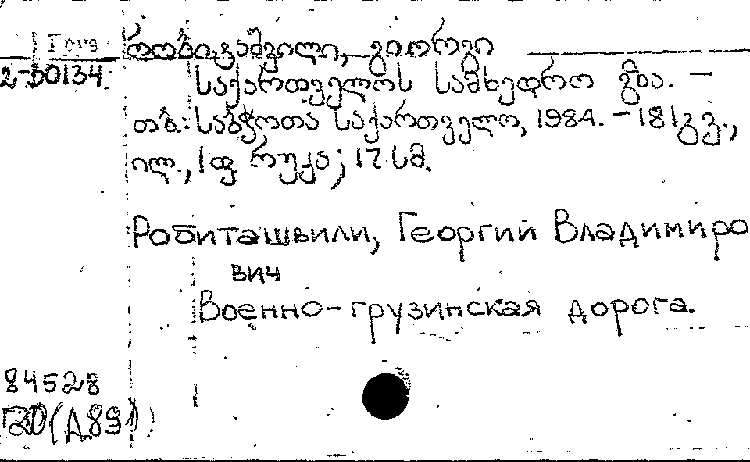 რობიტაშვილი, გიორგი
2-30134.
საქართველოს სამხედრო გზა. –
თბ.: საბჭოთა საქართველო, 1984. – 181 გვ.,
ილ., 1 ფ რუკა; 17 სმ.
Робиташвили, Георгий Владимиро
вич
Военно-грузинская дорога.
84528